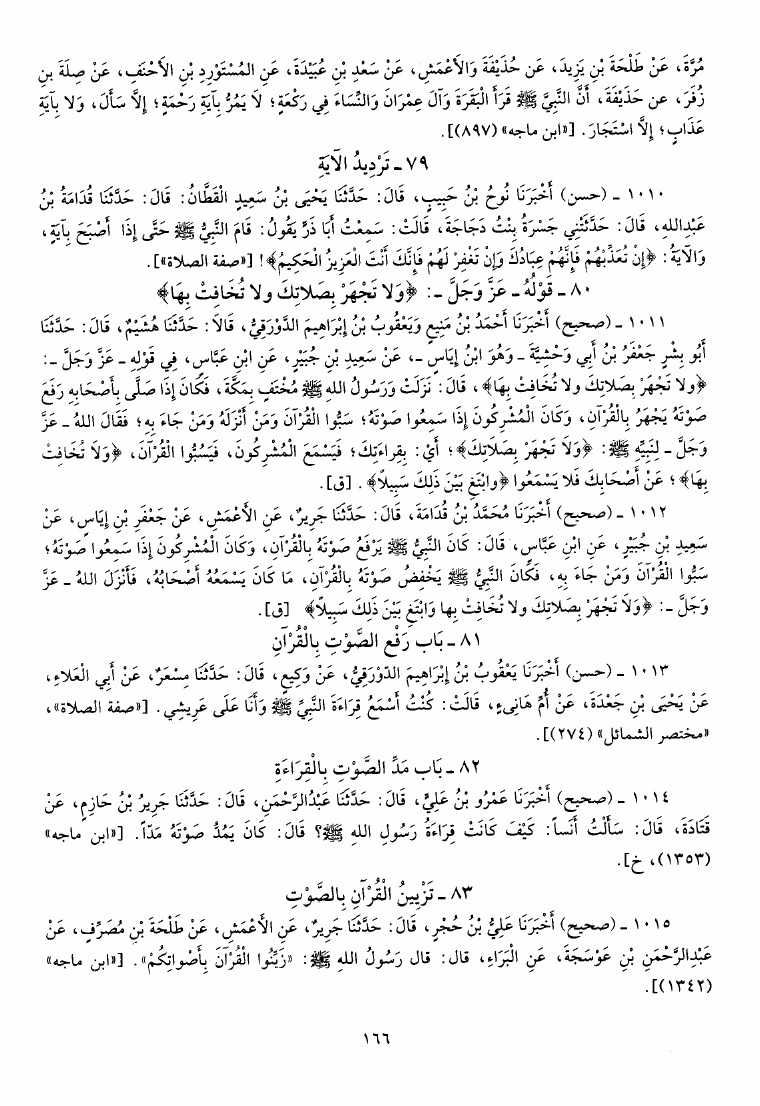 مُرَّةَ، عَنْ طَلْحَةَ بْنِ يَزِيدَ، عَن حُذَيْفَةَ وَالأَعْمَشِ، عَنْ سَعْدِ بْنِ عُبَيْدَةَ، عَنِ المُسْتَوْرِدِ بْنِ الأَحْنَفِ، عَنْ صِلَةَ بنِ
زُفَرَ، عن حَذَيْفَةَ، أَنَّ النَّبِيَّ ﷺ قَرَأَ الْبَقَرَةَ وَآلَ عِمْرَانَ وَالنِّسَاءَ فِي رَكْعَةٍ؛ لَا يَمُرُّ بِآيَةِ رَحْمَةٍ؛ إِلَّا سَأَلَ، وَلا بِآيَةِ
عَذَابٍ؛ إِلَّا اسْتَجَارَ. [«ابن ماجه» (٨٩٧)].
٧٩ ـ تَرْدِيدُ الآيَةِ
١٠١٠ ـ (حسن) أَخْبَرَنَا نُوحُ بْنُ حَبِيبٍ، قَالَ: حَدَّثَنَا يَحْيَى بْنُ سَعِيدٍ الْقَطَّانُ: قَالَ: حَدَّثَنَا قُدَامَةُ بْنُ
عَبْدِاللهِ، قَالَ: حَدَّثَتْنِي جَسْرَةُ بِنْتُ دَجَاجَةَ، قَالَتْ: سَمِعْتُ أَبَا ذَرٍّ يَقُولُ: قَامَ النَّبِيُّ ﷺ حَتَّى إِذَا أَصْبَحَ بِآيَةٍ،
وَالآيَةُ: ﴿إِنْ تُعَذِّبْهُمْ فَإِنَّهُمْ عِبَادُكَ وَإِنْ تَغْفِرْ لَهُمْ فَإِنَّكَ أَنْتَ الْعَزِيزُ الْحَكِيمُ﴾! [«صفة الصلاة»].
٨٠ ـ قَوْلُهُ ـ عَزَّ وَجَلَّ ـ: ﴿وَلا تَجْهَرْ بِصَلاتِكَ ولا تُخَافِتْ بِهَا﴾
١٠١١ ـ (صحيح) أَخْبَرَنَا أَحْمَدُ بْنُ مَنِيعٍ وَيَعْقُوبُ بْنُ إِبْرَاهِيمَ الدَّوْرَقِيُّ، قَالَا: حَدَّثَنَا هُشَيْمٌ، قَالَ: حَدَّثَنَا
أَبُو بِشْرٍ جَعْفَرُ بْنُ أَبِي وَحْشِيَّةَ ـ وَهُوَ ابْنُ إِيَاسٍ ـ، عَنْ سَعِيدِ بْنِ جُبَيْرٍ، عَنِ ابْنِ عَبَّاسٍ، فِي قَوْلِهِ ـ عَزَّ وَجَلَّ ـ:
﴿ولا تَجْهَرْ بِصَلاتِكَ ولا تُخَافِتْ بِهَا﴾، قَالَ: نَزَلَتْ وَرَسُولُ اللهِ ﷺ مُخْتَفٍ بِمَكَّةَ، فَكَانَ إِذَا صَلَّى بِأَصْحَابِهِ رَفَعَ
صَوْتَهُ يَجْهَرُ بِالْقُرْآنِ، وَكَانَ الْمُشْرِكُونَ إِذَا سَمِعُوا صَوْتَهُ؛ سَبُّوا الْقُرْآنَ وَمَنْ أَنْزَلَهُ وَمَنْ جَاءَ بِهِ؛ فَقَالَ اللهُ ـ عَزَّ
وَجَلَّ ـ لِنَبِيِّهِ ﷺ: ﴿وَلَا تَجْهَرْ بِصَلَاتِكَ﴾؛ أَيْ: بِقِرَاءَتِكَ؛ فَيَسْمَعَ الْمُشْرِكُونَ، فَيَسُبُّوا الْقُرْآنَ، ﴿وَلَا تُخَافِتْ
بِهَا﴾؛ عَنْ أَصْحَابِكَ فَلا يَسْمَعُوا ﴿وابْتَغِ بَيْنَ ذَلِكَ سَبِيلاً﴾. [ق].
١٠١٢ ـ (صحيح) أَخْبَرَنَا مُحَمَّدُ بْنُ قُدَامَةَ، قَالَ: حَدَّثَنَا جَرِيرٌ، عَنِ الأَعْمَشِ، عَنْ جَعْفَرِ بْنِ إِيَاسٍ، عَنْ
سَعِيدِ بْنِ جُبَيْرٍ، عَنِ ابْنِ عَبَّاسٍ، قَالَ: كَانَ النَّبِيُّ ﷺ يَرْفَعُ صَوْتَهُ بِالْقُرْآنِ، وَكَانَ الْمُشْرِكُونَ إِذَا سَمِعُوا صَوْتَهُ؛
سَبُّوا الْقُرْآنَ وَمَنْ جَاءَ بِهِ، فَكَانَ النَّبِيُّ ﷺ يَخْفِضُ صَوْتَهُ بِالْقُرْآنِ، مَا كَانَ يَسْمَعُهُ أَصْحَابُهُ، فَأَنْزَلَ اللهُ ـ عَزَّ
وَجَلَّ ـ: ﴿وَلَا تَجْهَرْ بِصَلاتِكَ ولا تُخَافِتْ بِها وَابْتَغِ بَيْنَ ذَلِكَ سَبِيلاً﴾ [ق].
٨١ ـ بَاب رَفْعِ الصَّوْتِ بِالْقُرْآنِ
١٠١٣ ـ (حسن) أَخْبَرَنَا يَعْقُوبُ بْنُ إِبْرَاهِيمَ الدَّوْرَقِيُّ، عَنْ وَكِيعٍ، قَالَ: حَدَّثَنَا مِسْعَرٌ، عَنْ أَبِي الْعَلاءِ،
عَنْ يَحْيَى بْنِ جَعْدَةَ، عَنْ أُمِّ هَانِىءٍ، قَالَتْ: كُنْتُ أَسْمَعُ قِرَاءَةَ النَّبِيِّ ﷺ وَأَنَا عَلَى عَرِيشِي. [«صفة الصلاة»،
«مختصر الشمائل» (٢٧٤)].
٨٢ ـ بَاب مَدِّ الصَّوْتِ بِالْقِرَاءَةِ
١٠١٤ ـ (صحيح) أَخْبَرَنَا عَمْرُو بْنُ عَلِيٍّ، قَالَ: حَدَّثَنَا عَبْدُالرَّحْمَنِ، قَالَ: حَدَّثَنَا جَرِيرُ بْنُ حَازِمٍ، عَنْ
قَتَادَةَ، قَالَ: سَأَلْتُ أَنَساً: كَيْفَ كَانَتْ قِرَاءَةُ رَسُولِ اللهِ ﷺ؟ قَالَ: كَانَ يَمُدُّ صَوْتَهُ مَدّاً. [«ابن ماجه»
(١٣٥٣)، خ].
٨٣ ـ تَزْيِينُ الْقُرْآنِ بِالصَّوْتِ
١٠١٥ ـ (صحيح) أَخْبَرَنَا عَلِيُّ بْنُ حُجْرٍ، قَالَ: حَدَّثَنَا جَرِيرٌ، عَنِ الأَعْمَشِ، عَنْ طَلْحَةَ بْنِ مُصَرِّفٍ، عَنْ
عَبْدِالرَّحْمَنِ بْنِ عَوْسَجَةَ، عَنِ الْبَرَاءِ، قال: قال رَسُولُ اللهِ ﷺ: «زَيِّنُوا الْقُرْآنَ بِأَصْوَاتِكُمْ». [«ابن ماجه»
(١٣٤٢)].
١٦٦